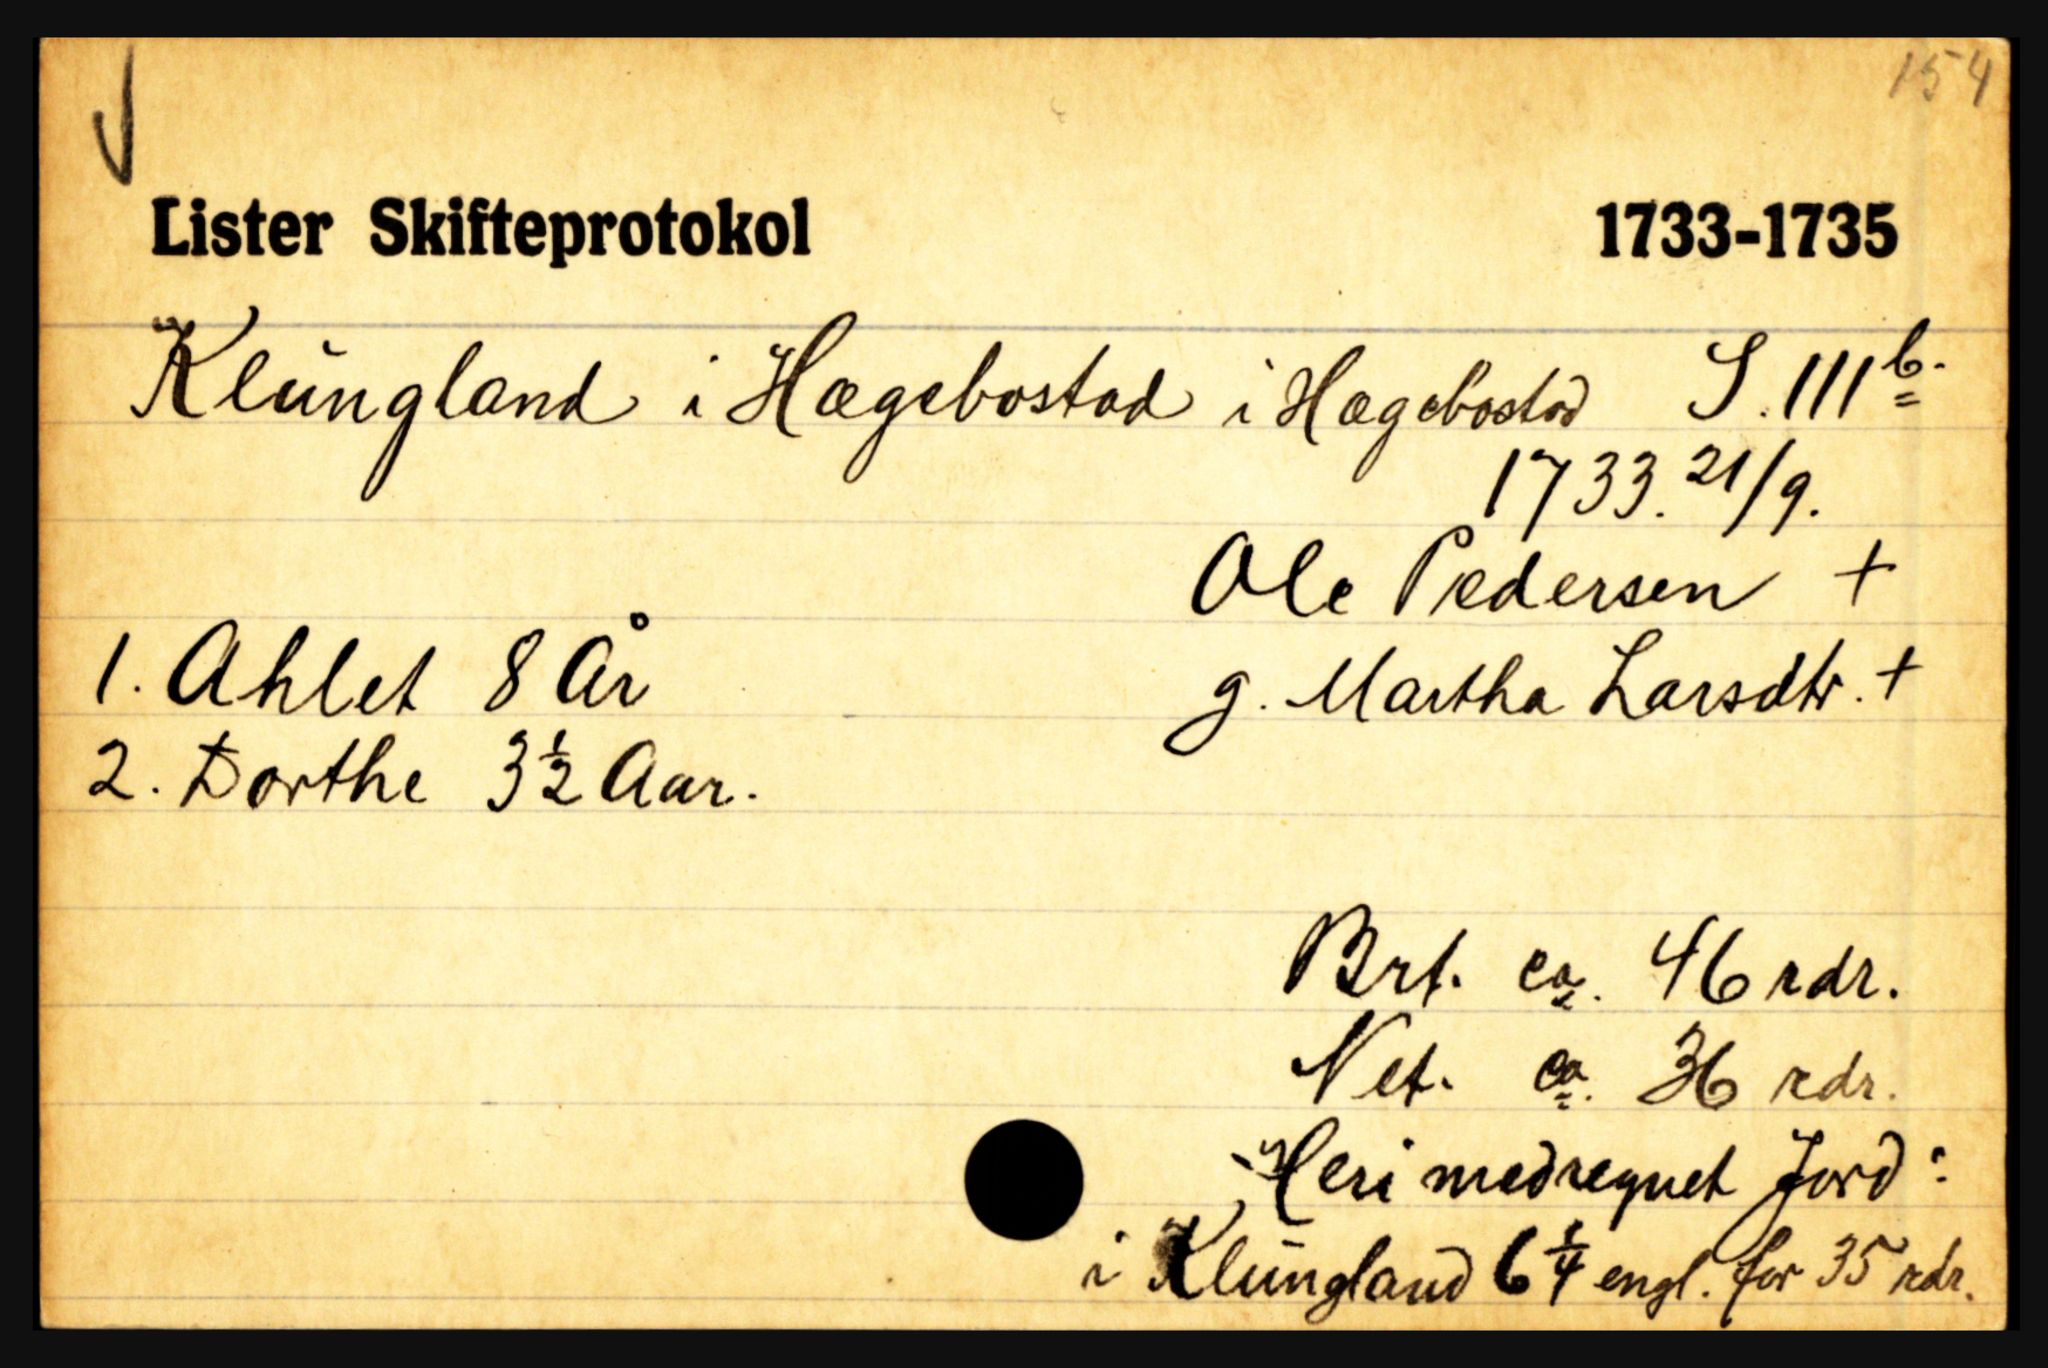 154
Lister Skifteprotokol 1733-1735
Klungland i Hægebostad i Hægebostad S. 111b.
1733. 21/9.
Ole Pedersen +
1. Ahlet 8 År g. Martha Larsdtr. +
2. Dorthe 3 1/2 Aar.
Brt. ca. 46 rdr.
Net. ca. 36 rdr.
Heri medregnet Jord:
i Klungland 6 1/4 engl. for 35 rdr.